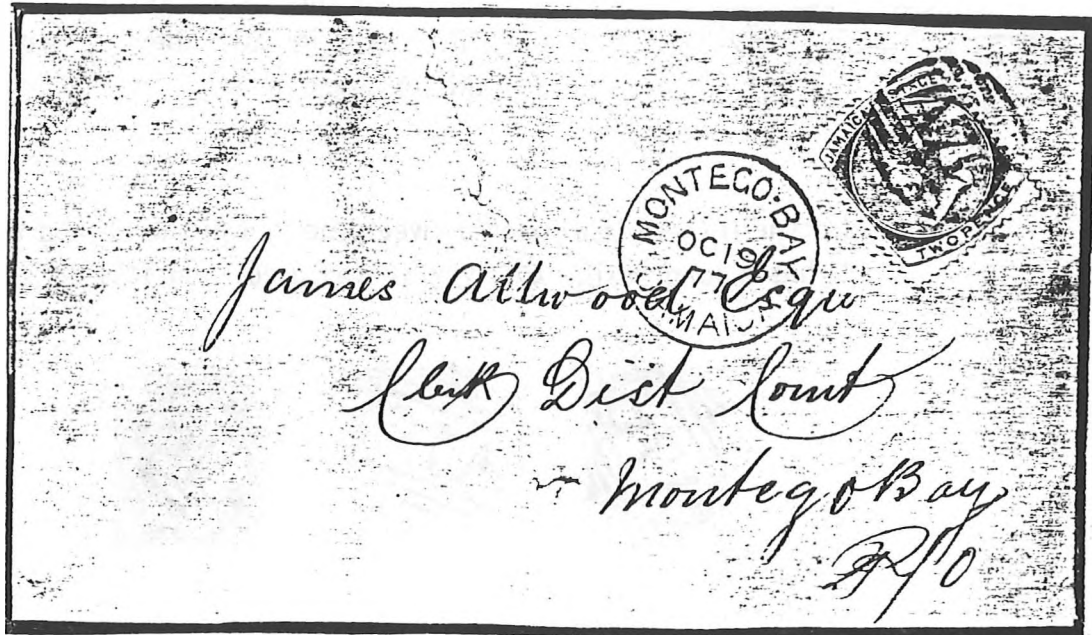 JAMAICA
TWO PENCE
MONTEGO·BAY
OC 19
77
JAMAICA
James Attwood Esqu
Clerk Dist Court
Montego Bay
P/o